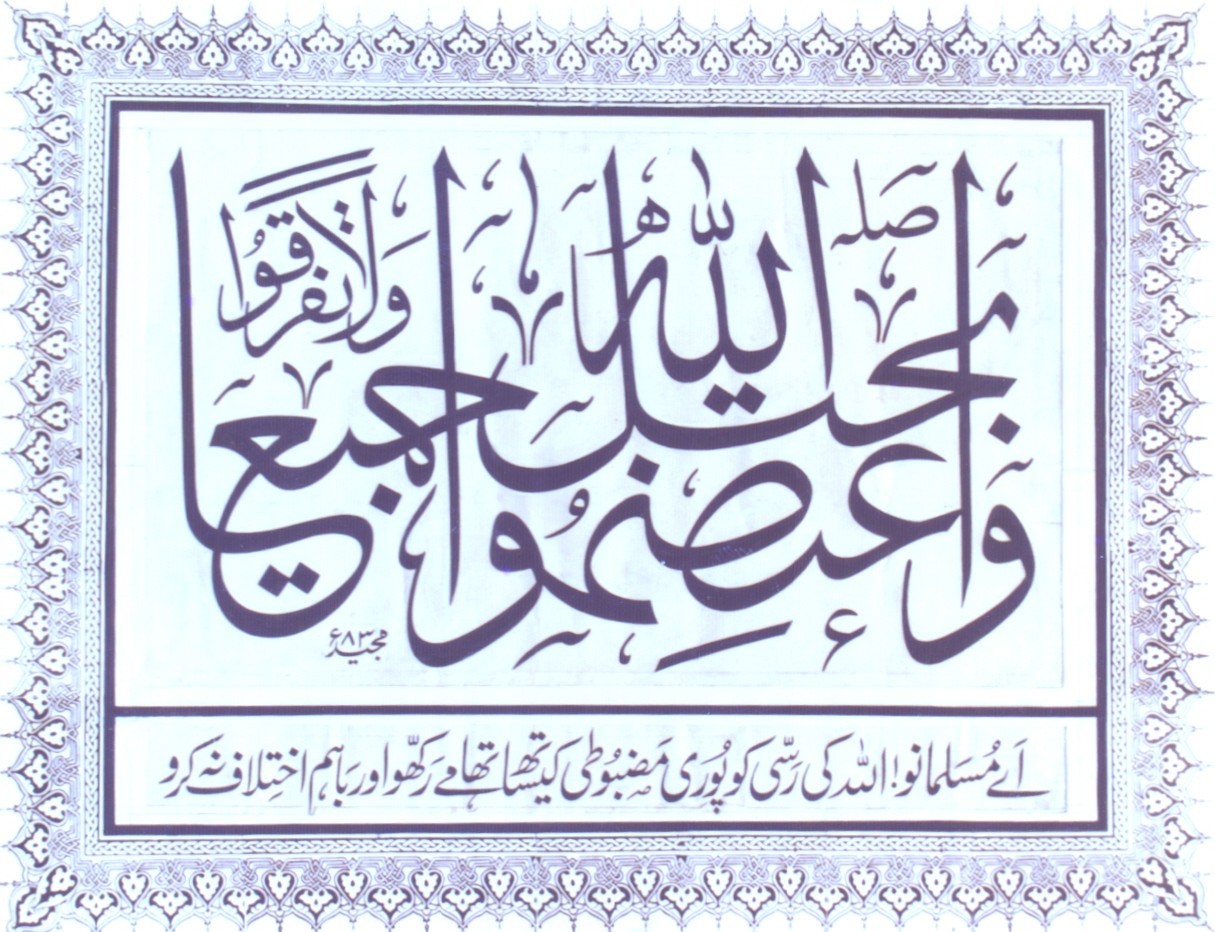 وَاعْتَصِمُوا بِحَبْلِ اللّٰهِ جَمِيعًا وَلَا تَفَرَّقُوا
صلہ
مجید ۸۳ء
اَے مُسَلمانو! اللّٰہ کی رَسّی کو پُوری مَضبُوطی کیتھسا تھامے رَکھّو اور بَاہم اختِلاف نَہ کرو